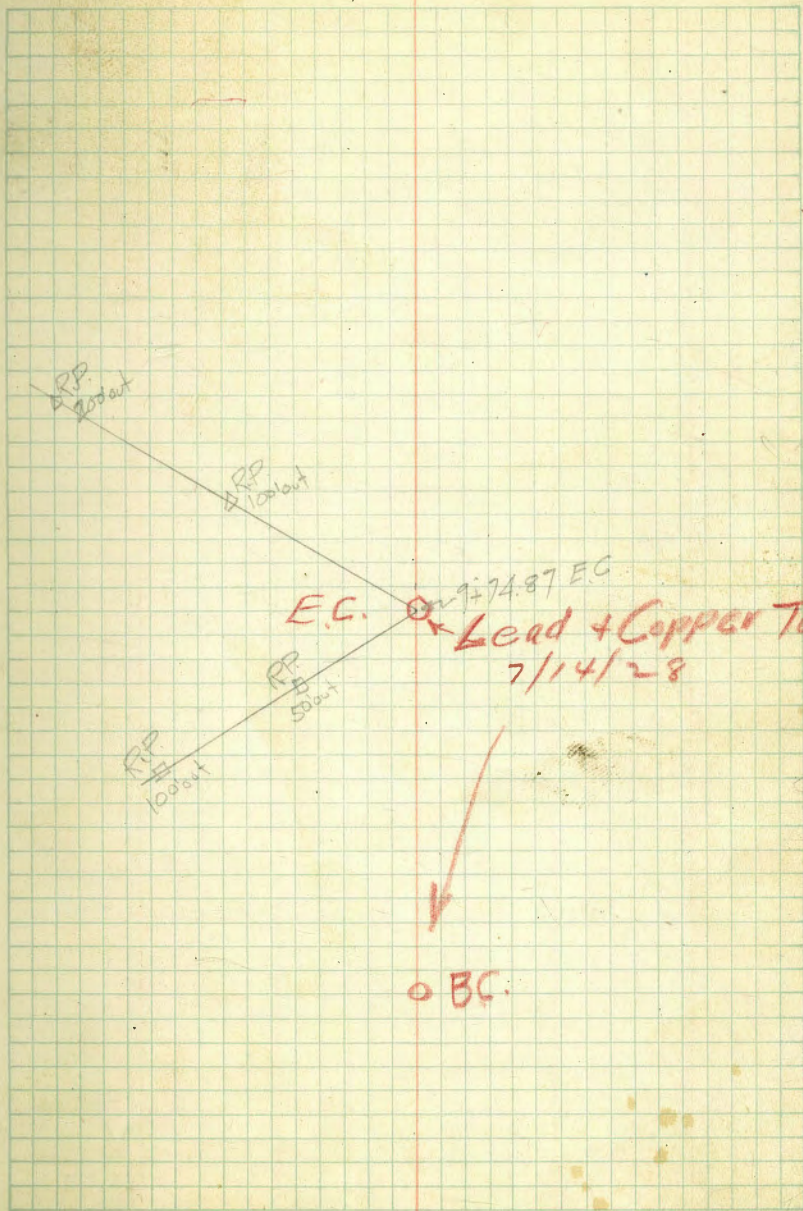 R.P.
200' out
R.P.
100' out
9+74.87 E.C
E.C.
Lead + Copper
7/14/28
R.P.
50' out
R.P.
100' out
BC.